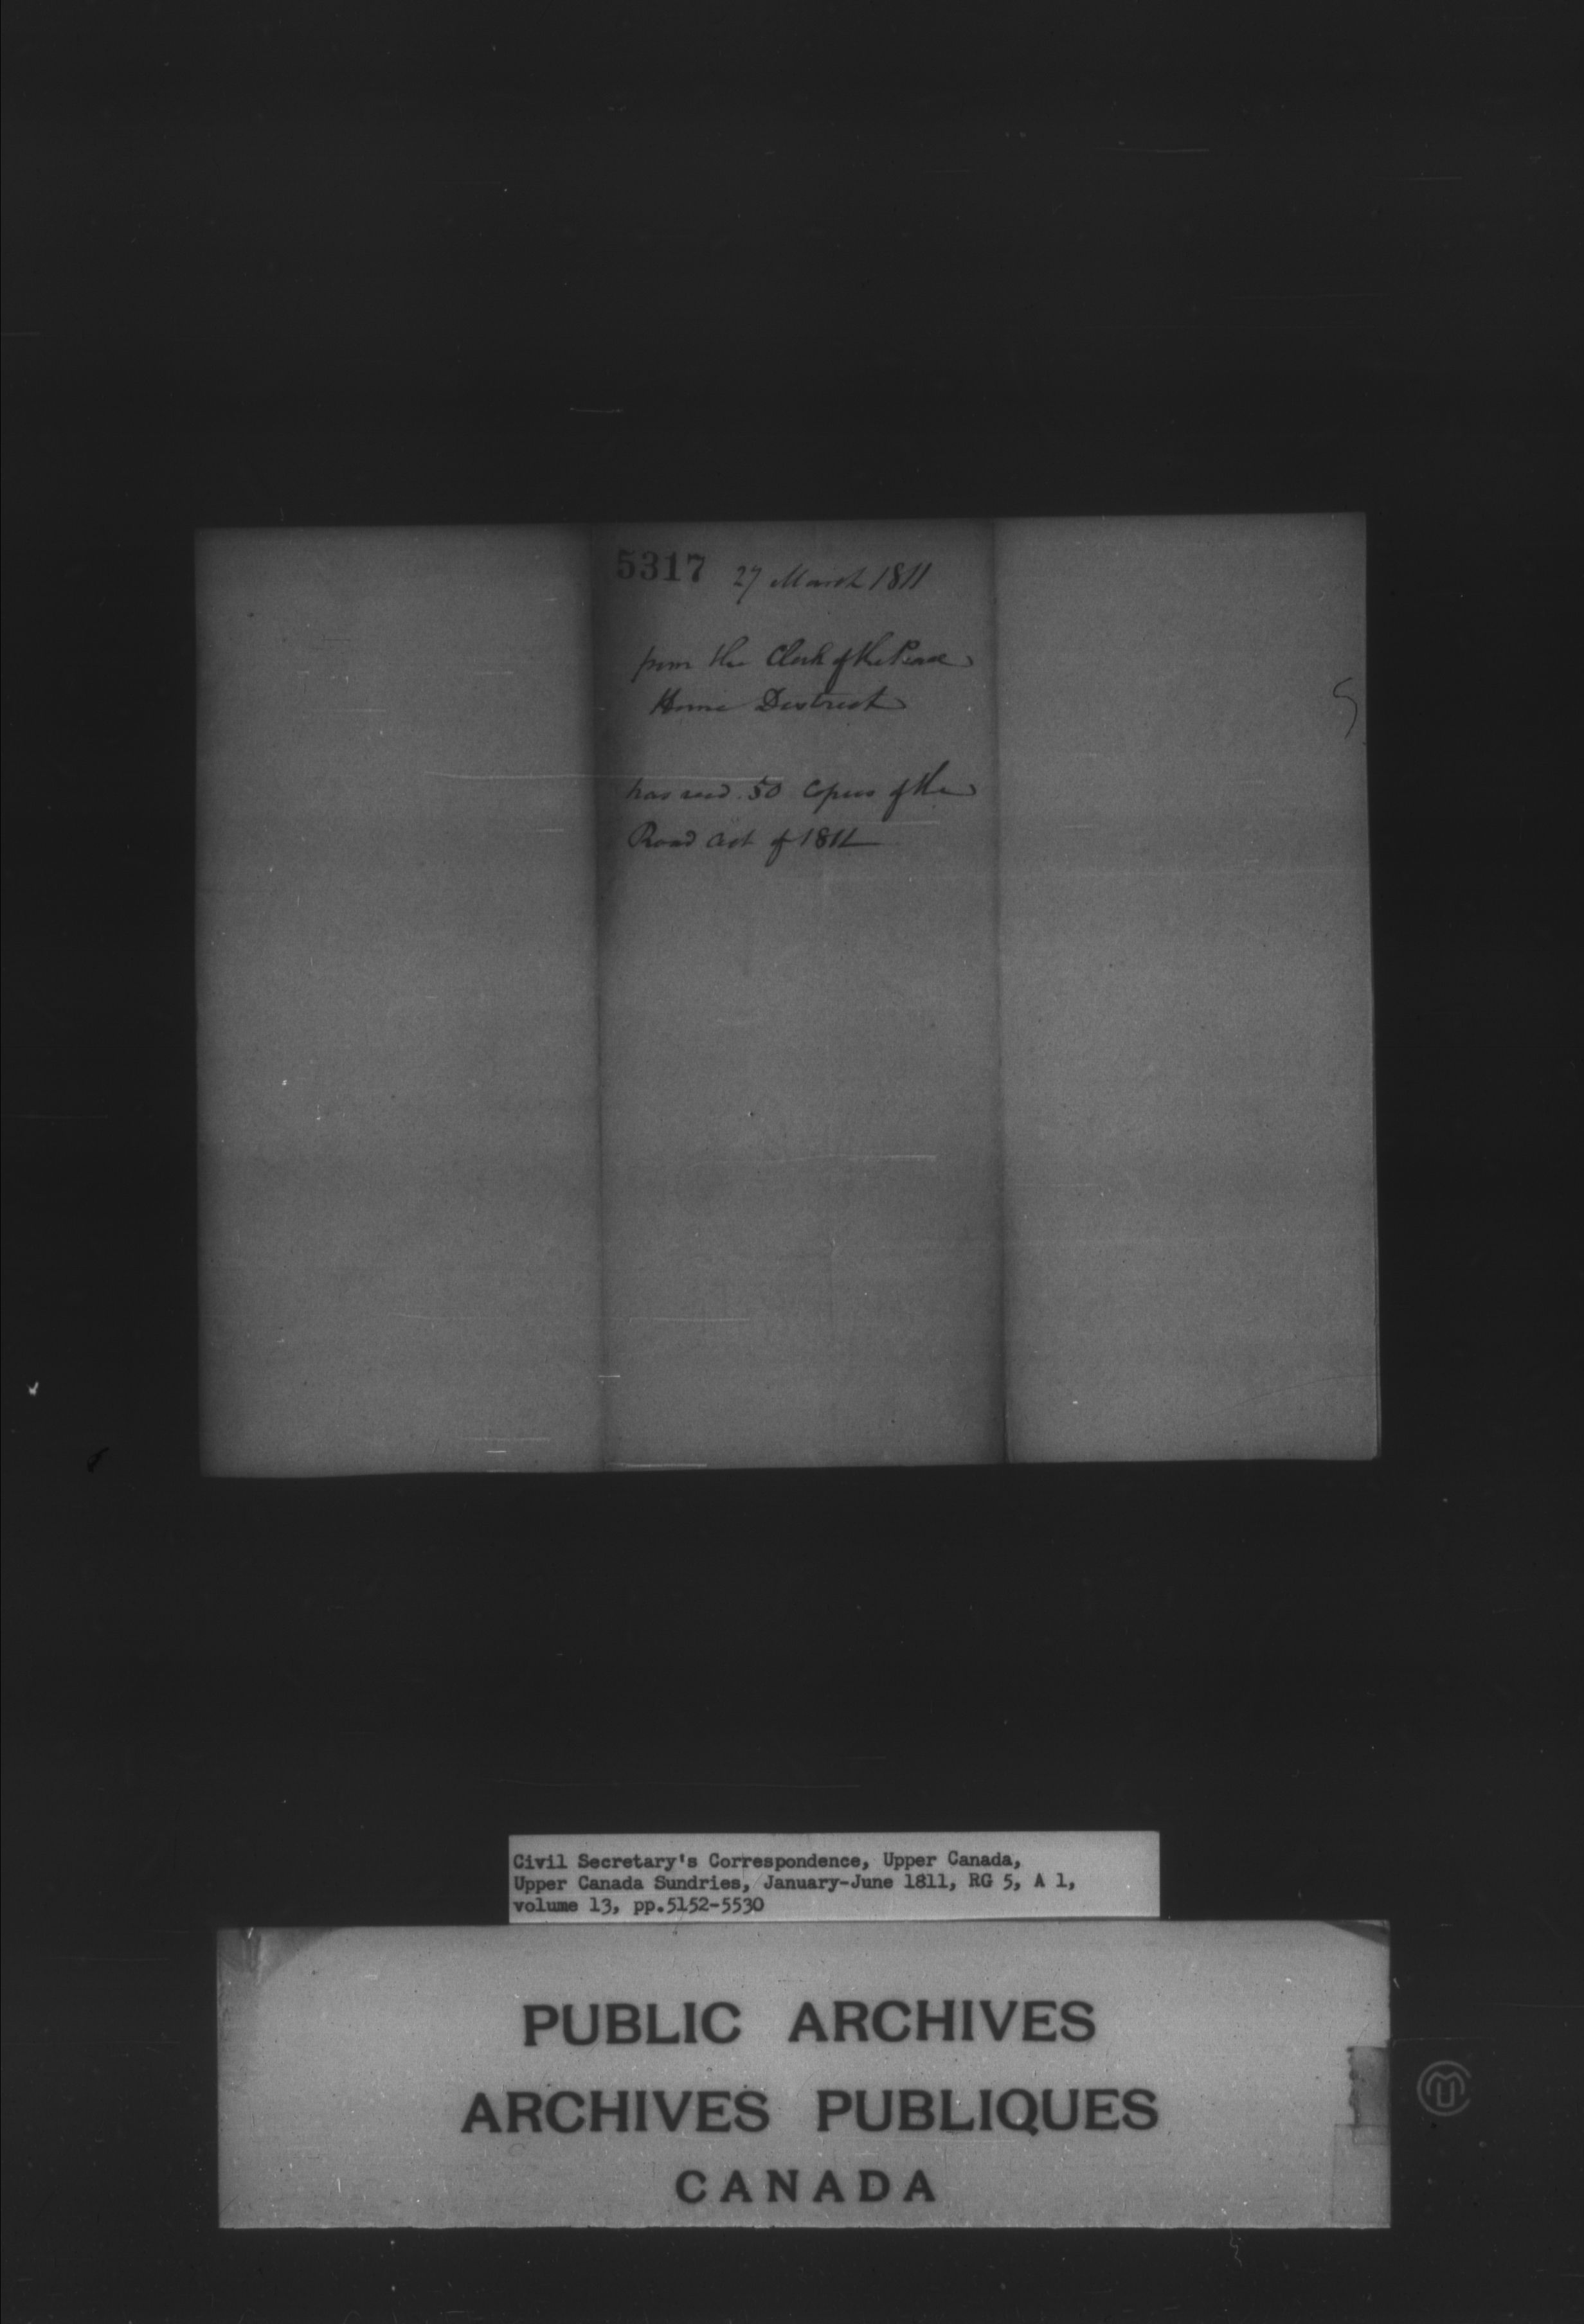 5317 27 March 1811
from the Clerk of the Peace
Home District
has recd. 50 Copies of the
Road Act of 1811
Civil Secretary's Correspondence, Upper Canada,
Upper Canada Sundries, January-June 1811, RG 5, A 1,
volume 13, pp.5152-5530
PUBLIC ARCHIVES
ARCHIVES PUBLIQUES
CANADA